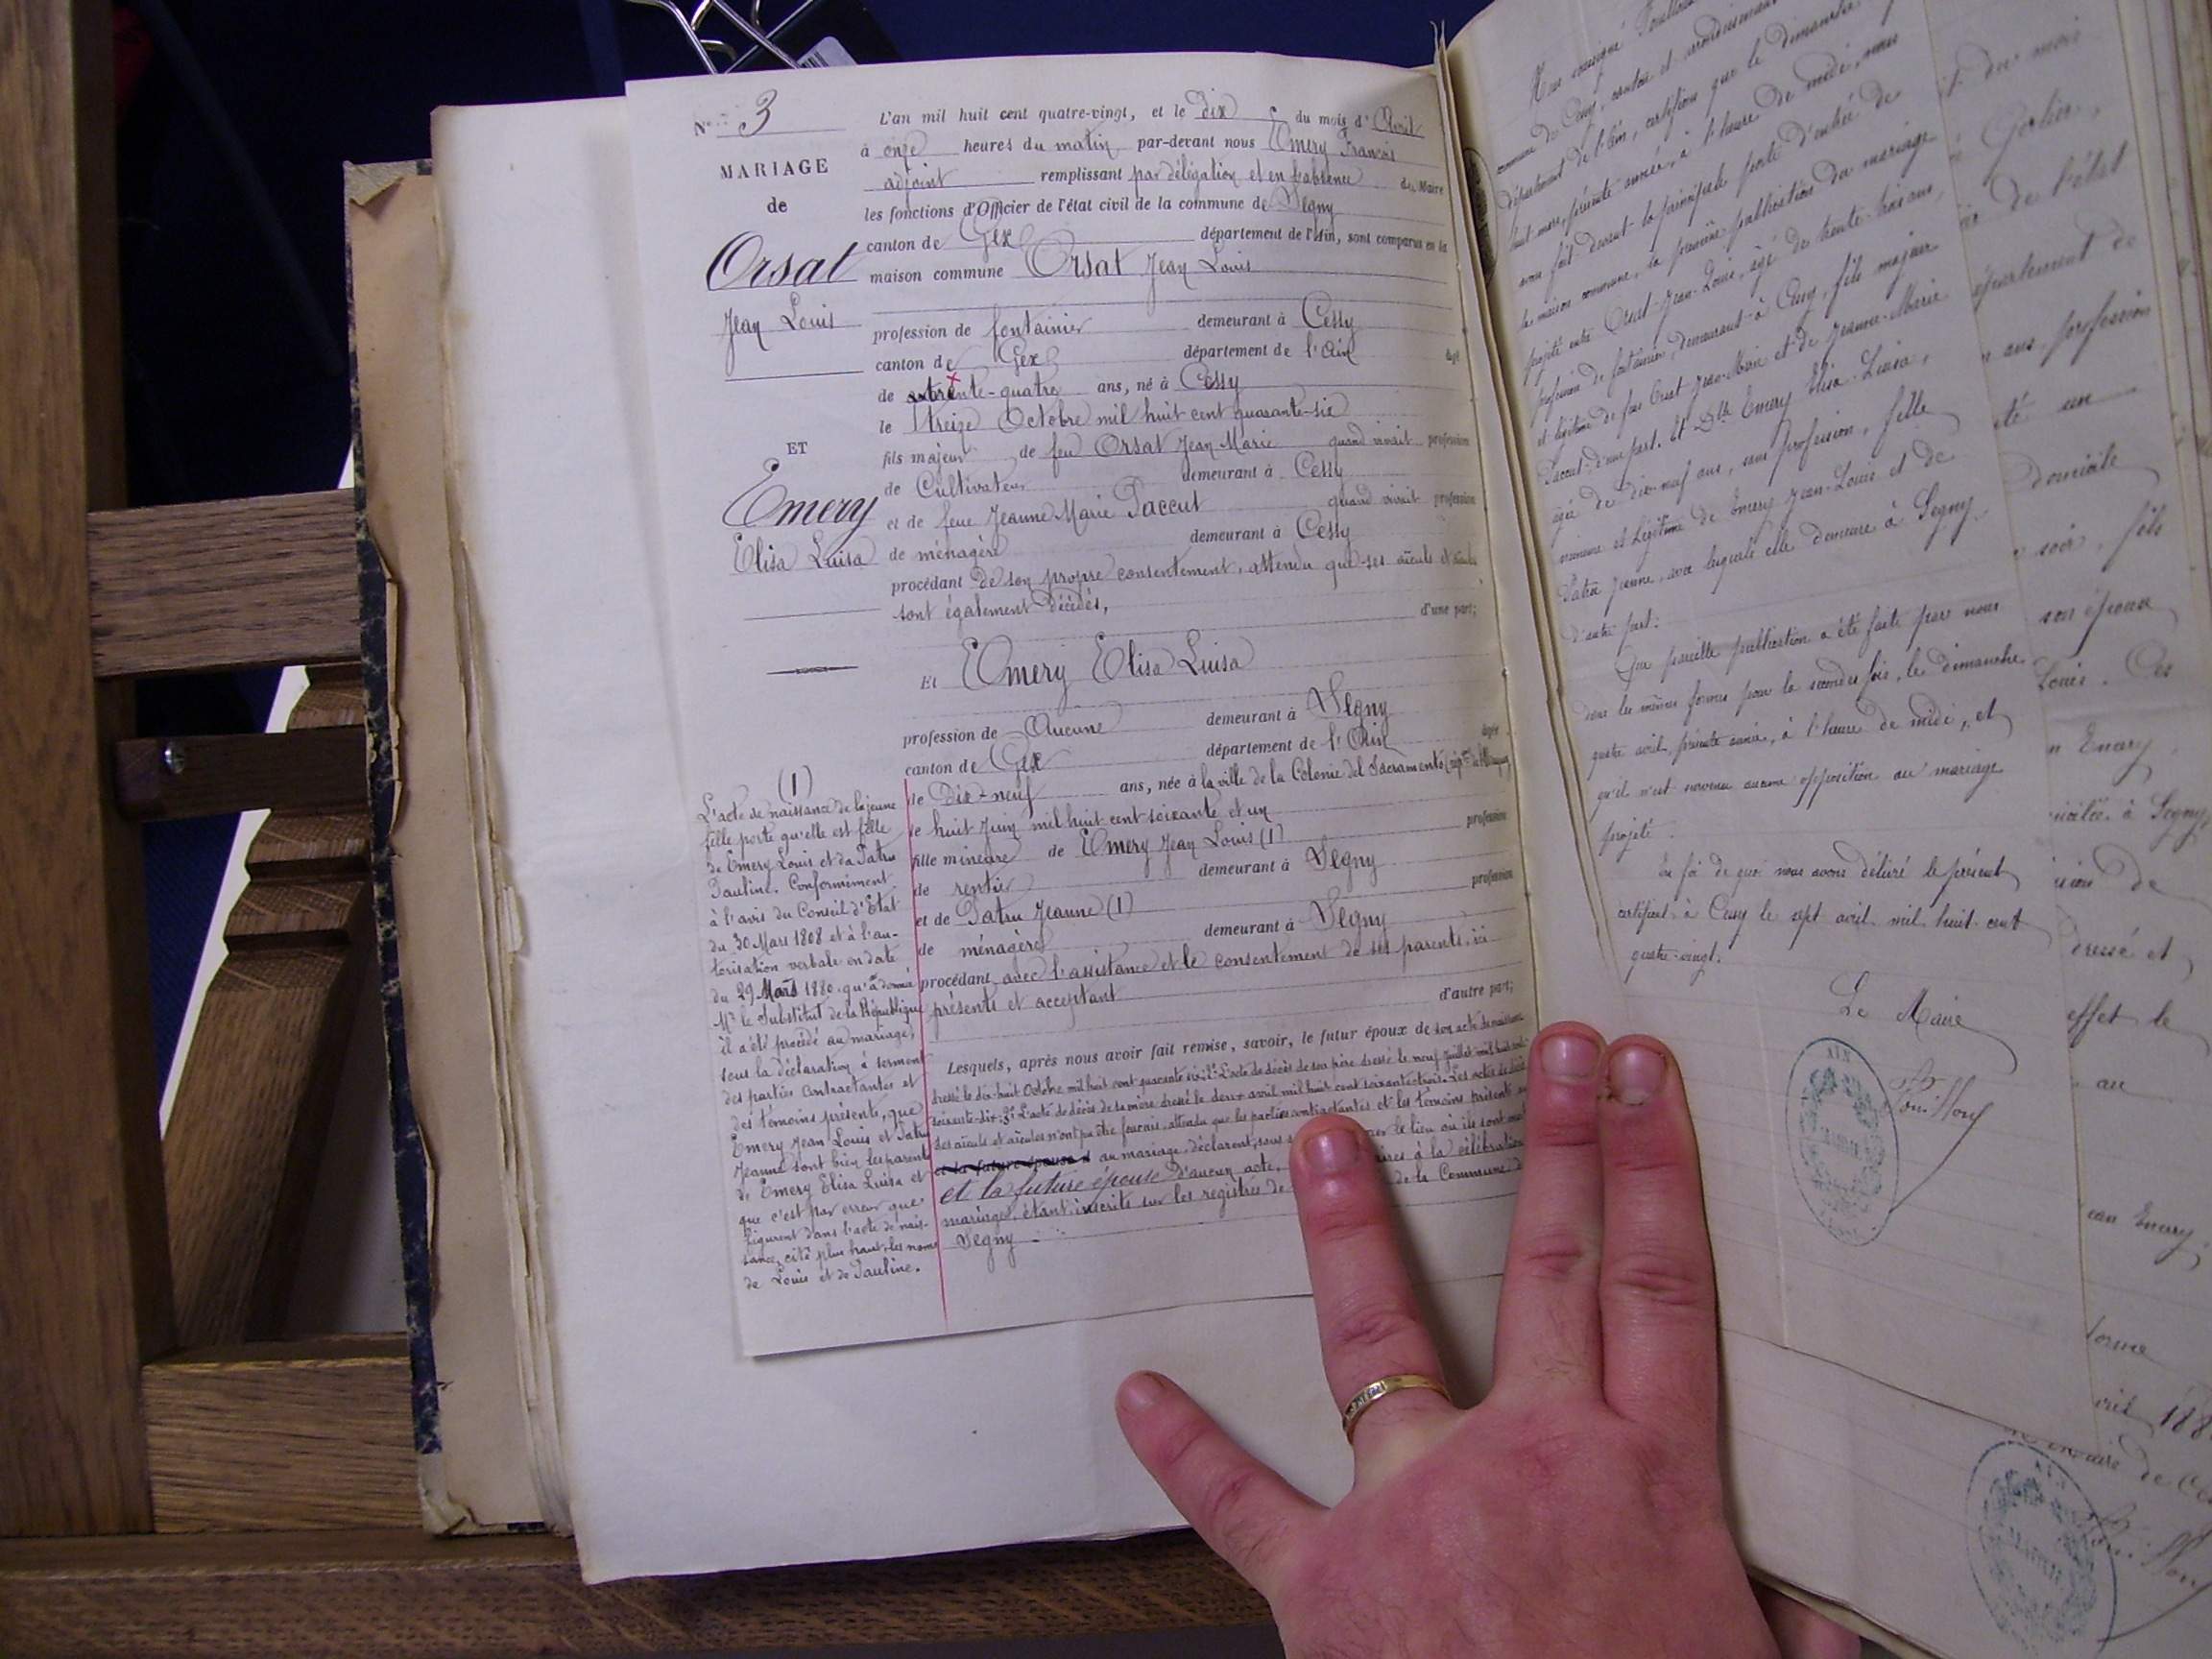 N° 3
MARIAGE
de
Orsat
Jean Louis
ET
Emery
Elisa Luisa
L'an mil huit cent quatre-vingt, et le dix du mois d'Avril
à onze heures du matin par-devant nous Emery François
adjoint remplissant par délégation et en l'absence du Maire
les fonctions d'Officier de l'état civil de la commune de Segny
canton de Gex département de l'Ain, sont comparus en la
maison commune Orsat Jean Louis
profession de fontainier demeurant à Cessy
canton de Gex département de l'Ain âgé
de trente-quatre ans, né à Cessy
le treize Octobre mil huit cent quarante-six
fils majeur de feu Orsat Jean Marie quand vivait profession
de Cultivateur demeurant à Cessy
et de feue Jeanne Marie Paccut quand vivait profession
de ménagère demeurant à Cessy
procédant de son propre consentement, attendu que ses aïeuls et aïeules
sont également décédés, d'une part;
Et Emery Elisa Luisa
profession de Aucune demeurant à Segny
canton de Gex département de l'Ain âgée
de Dix-neuf ans, née à la ville de la Colonie del Sacramento
le huit Juin mil huit cent soixante et un
fille mineure de Emery Jean Louis (1) profession
de rentier demeurant à Segny
et de Patru Jeanne (1) profession
de ménagère demeurant à Segny
procédant avec l'assistance et le consentement de ses parents, ici
présents et acceptant d'autre part;
Lesquels, après nous avoir fait remise, savoir, le futur époux de son acte de naissance
dressé le dix-huit Octobre mil huit cent quarante six; 2° L'acte de décès de son père dressé le neuf Juillet mil huit cent
soixante-dix; 3° L'acte de décès de sa mère dressé le deux avril mil huit cent soixante et trois. Les actes de décès
des aïeuls et aïeules n'ont pu être fournis, attendu que les parties contractantes et les témoins présents
et la future épouse au mariage, déclarent, sous le lieu où ils sont
et la future épouse d'aucun acte, à la célébration
mariage, étant inscrits sur les registres de de la Commune de
Segny
(1)
L'acte de naissance de la jeune
fille porte qu'elle est fille
de Emery Louis et da Patru
Pauline. Conformément
à l'avis du Conseil d'Etat
du 30 Mars 1808 et à l'au-
torisation verbale en date
du 29 Mars 1880, qu'a donné
Mr le Substitut de la République
il a été procédé au mariage,
sous la déclaration à serment
des parties contractantes et
des témoins présents, que
Emery Jean Louis et Patru
Jeanne sont bien les parents
de Emery Elisa Luisa et
que c'est par erreur que
figurent dans l'acte de nais-
sance, cité plus haut, les noms
de Louis et de Pauline.
Nous soussigné
commune de Cessy, canton et arrondissement
département de l'Ain, certifions que le dimanche
huit mars, présente année, à l'heure de midi, nous
avons fait devant la principale porte d'entrée de
la maison commune, la première publication du mariage
projeté entre Orsat Jean-Louis, âgé de trente-trois ans,
profession de fontainier, demeurant à Cessy, fils majeur
et légitime de feu Orsat Jean-Marie et de Jeanne-Marie
Paccut d'une part. Et Dlle Emery Elisa-Luisa,
âgée de dix-neuf ans, sans profession, fille
mineure et légitime de Emery Jean-Louis et de
Patru Jeanne, avec laquelle elle demeure à Segny
d'autre part:
Que pareille publication a été faite par nous
dans les mêmes formes pour la seconde fois, le dimanche
quatre avril, présente année, à l'heure de midi, et
qu'il n'est survenu aucune opposition au mariage
projeté.
En foi de quoi nous avons délivré le présent
certificat, à Cessy le sept avril mil huit cent
quatre-vingt.
Le Maire
AIN
du mois
de l'état
département de
ans, profession
té un
domicile
soir, fils
son époux
Louis. Ces
n Emery,
à Segny,
de
dressé et
effet le
au
ean Emery,
forme
ril 188
de
AIN